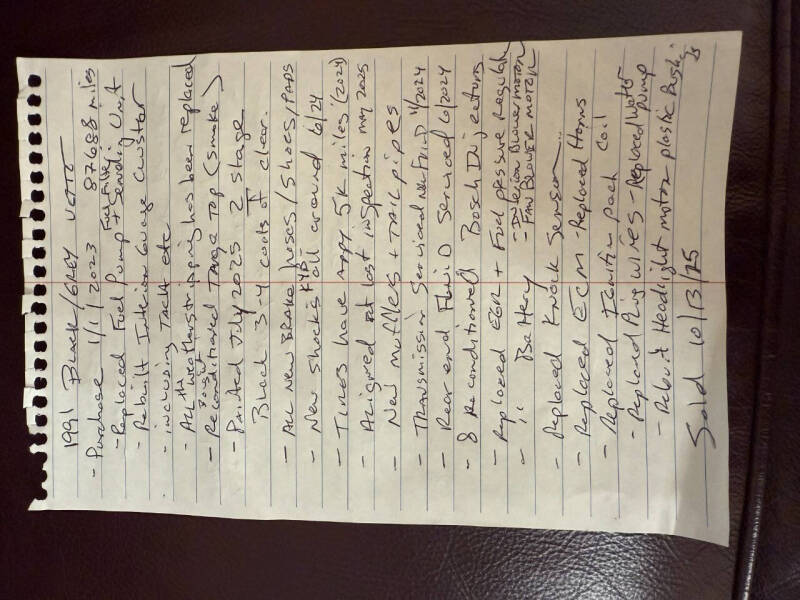 1991 Black/GREY VETTE
- Purchase 1/1/2023 87688 miles
- Replaced Fuel Pump + Sending Unit Fuel Filter
- Rebuilt Interior Guage Cluster
- inclusing TACH etc
- All the weatherstripping has been replaced
- Reconditioned Targa Top (smoke)
- Painted July 2025 2 stage
Black 3-4 coats of clear.
- All New BRAKE hoses/Shoes, PADS
- New Shocks KYB all around 6/24
- Tires have APPX 5K miles (2024)
- Aligned at last inspection may 2025
- New muffles + TAIL pipes
- Transmission Serviced New FLUID 4/2024
- Rear end FLUID Serviced 6/2024
- 8 Reconditioned Bosch Injectors
- Replaced EGR + Fuel pressure Regulator
- " Battery - Interior Blower motor
- FAN BLOWER MOTOR
- Replaced Knock Sensor...
- Replaced ECM - Replaced Horns
- Replaced Ignition pack Coil
- Replaced Plug wires - Replaced Water pump
- Rebuit Headlight motor plastic Bush.
Sold 10/13/25